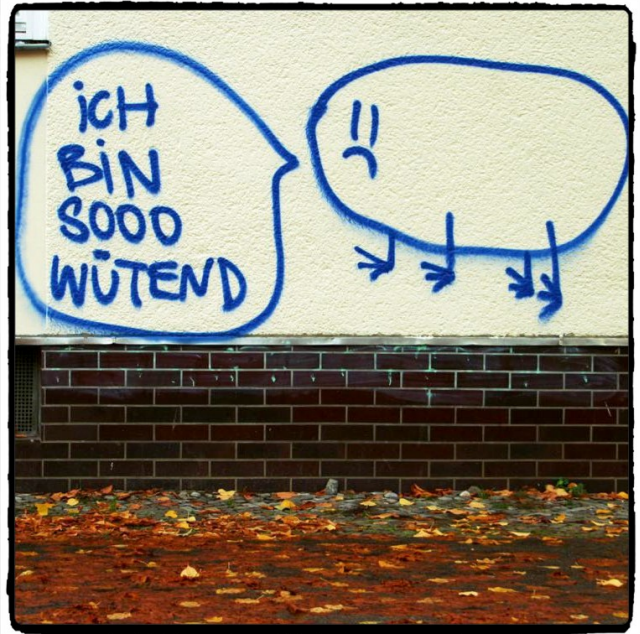 iCH
BiN
SOOO
WÜTEND